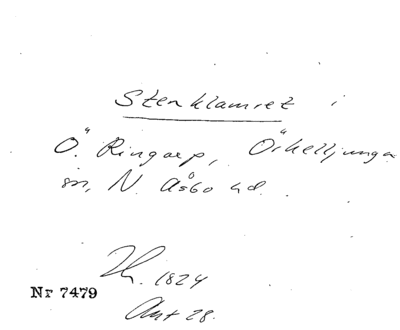 Stenklamret i
Ö. Ringarp, Örkelljunga
sn, N. Åsbo hd.
Th. 1824
Nr 7479
Ant 28.